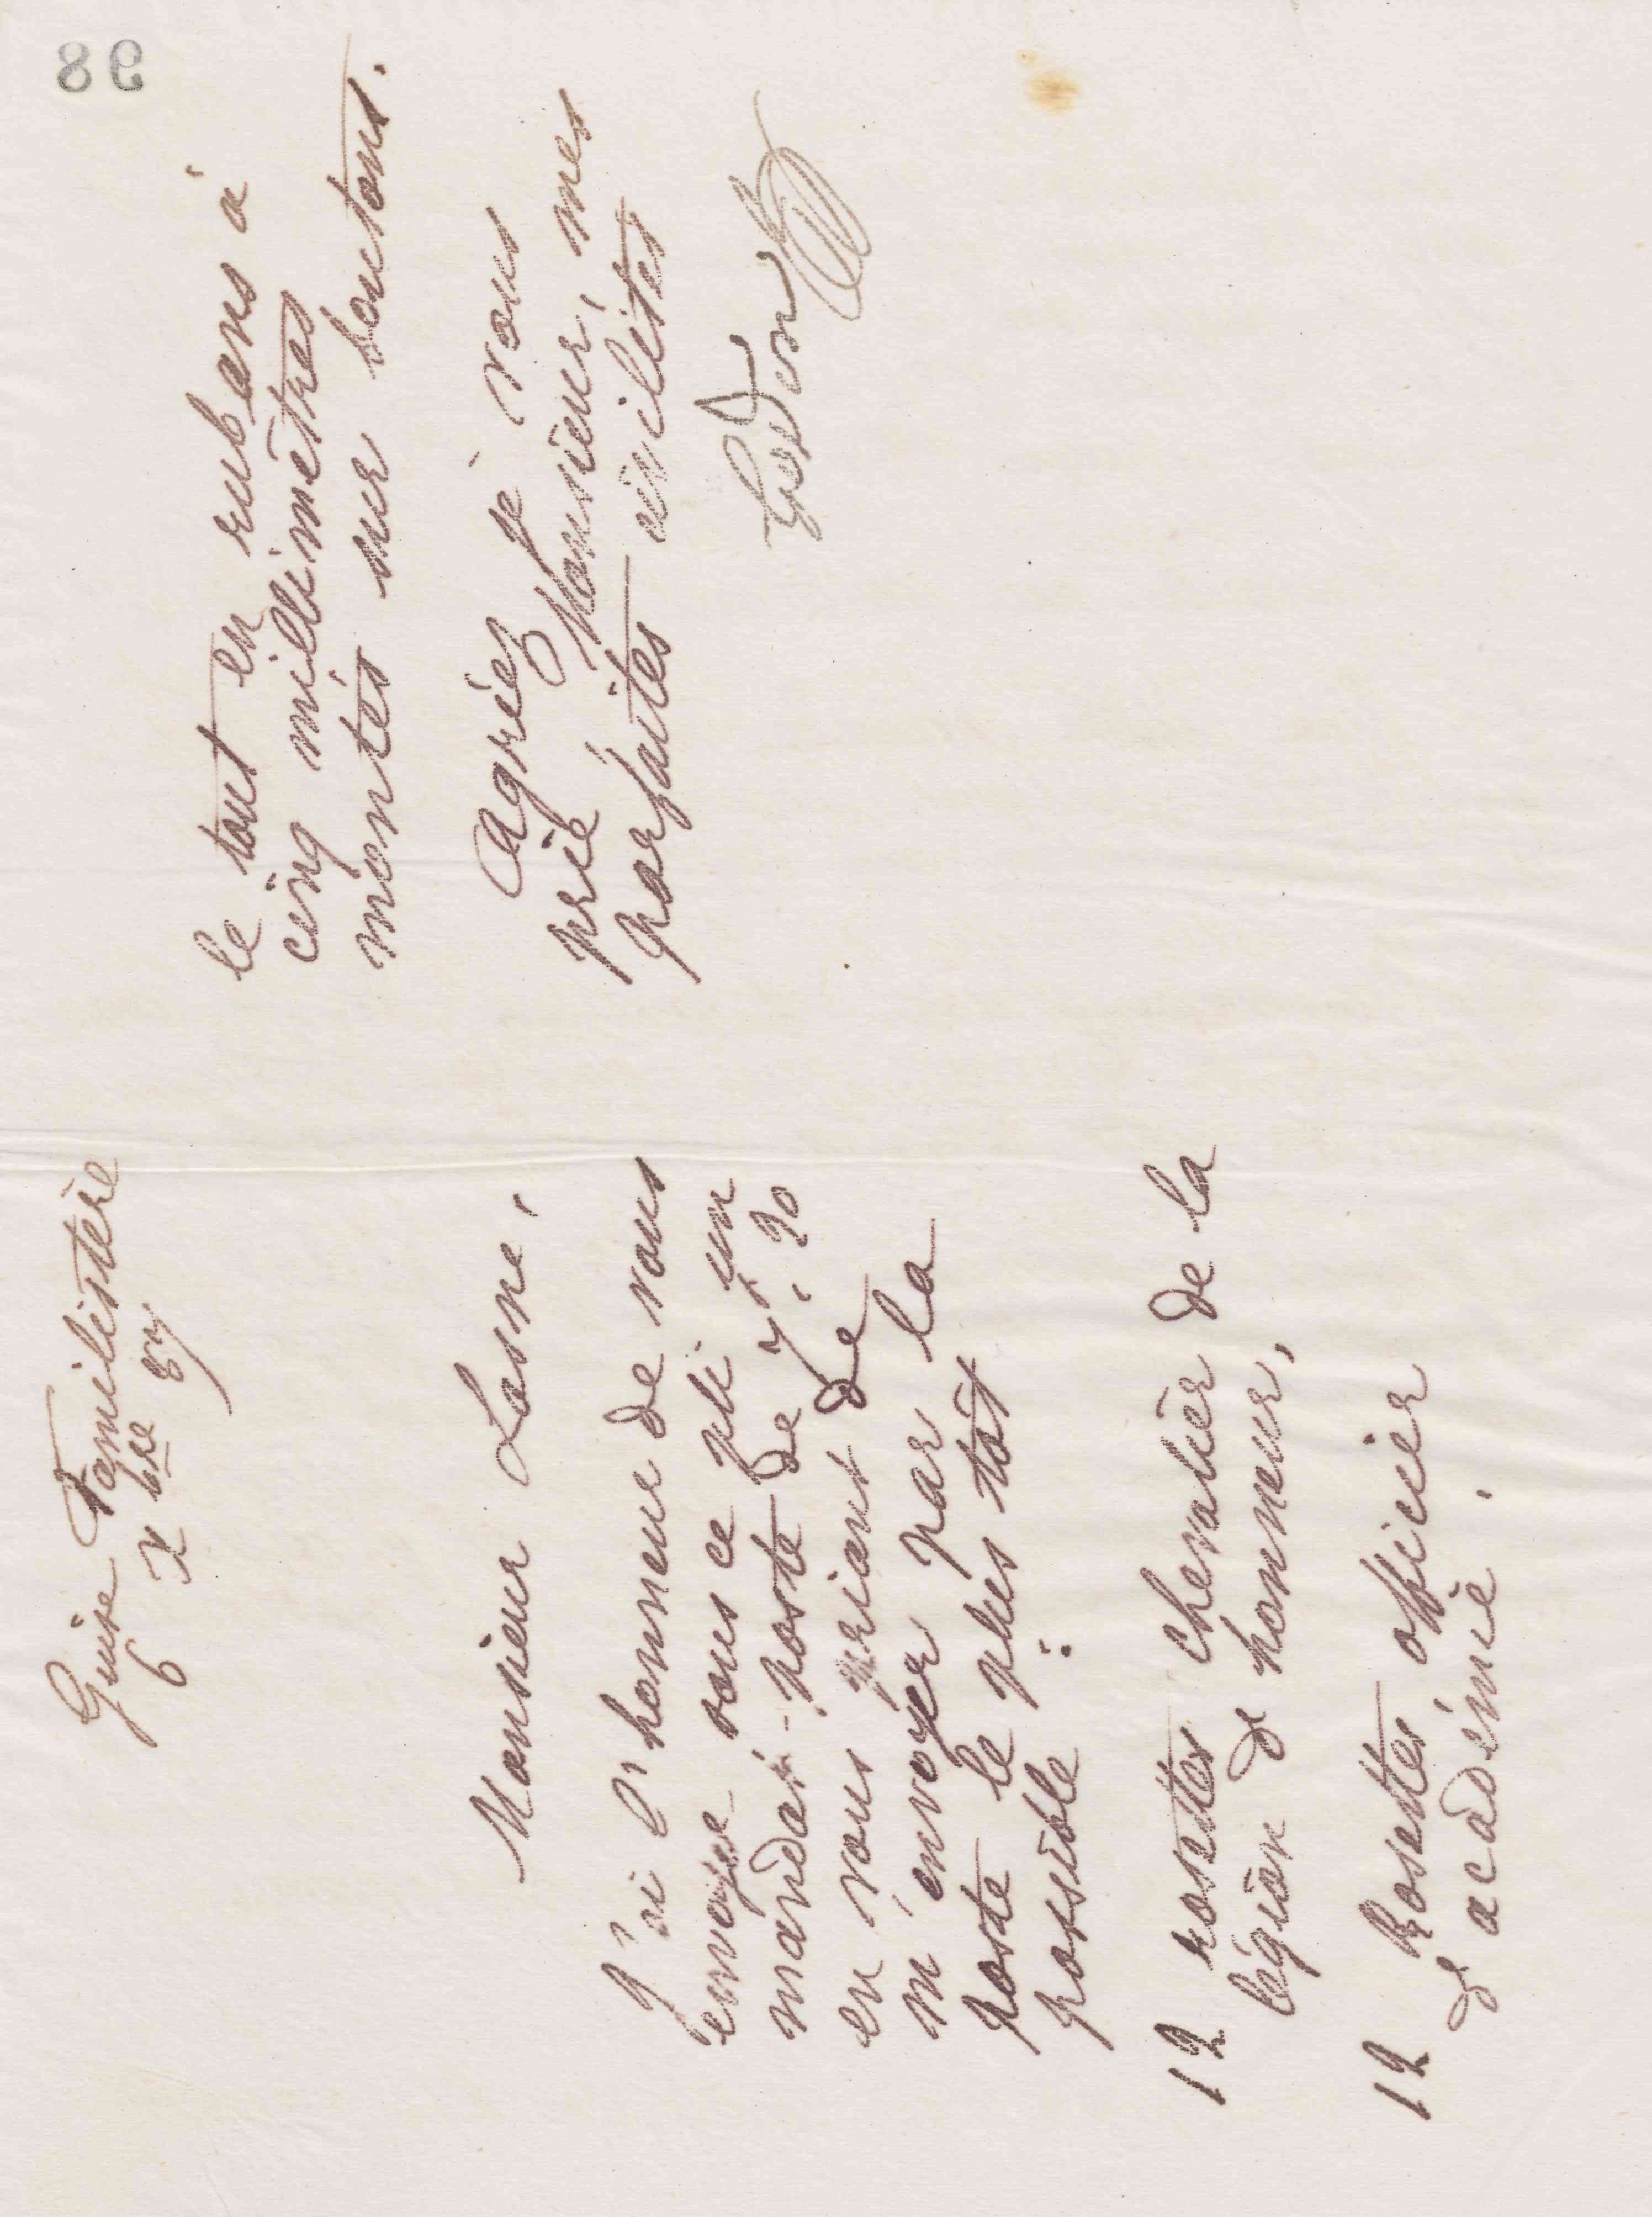 Guise Familistère
6 Xbre 87
Monsieur Lasne,
J'ai l'honneur de vous
envoyer sous ce pli un
mandat-poste de 7f,20
en vous priant de
m'envoyer par la
poste le plus tôt
possible :
12 rosettes chevalier de la
légion d'honneur,
12 Rosettes officier
d'académie.
le tout en rubans à
cinq millimètres
montés sur boutons.
Agréez je vous
prie Monsieur, mes
parfaites civilités
Godin